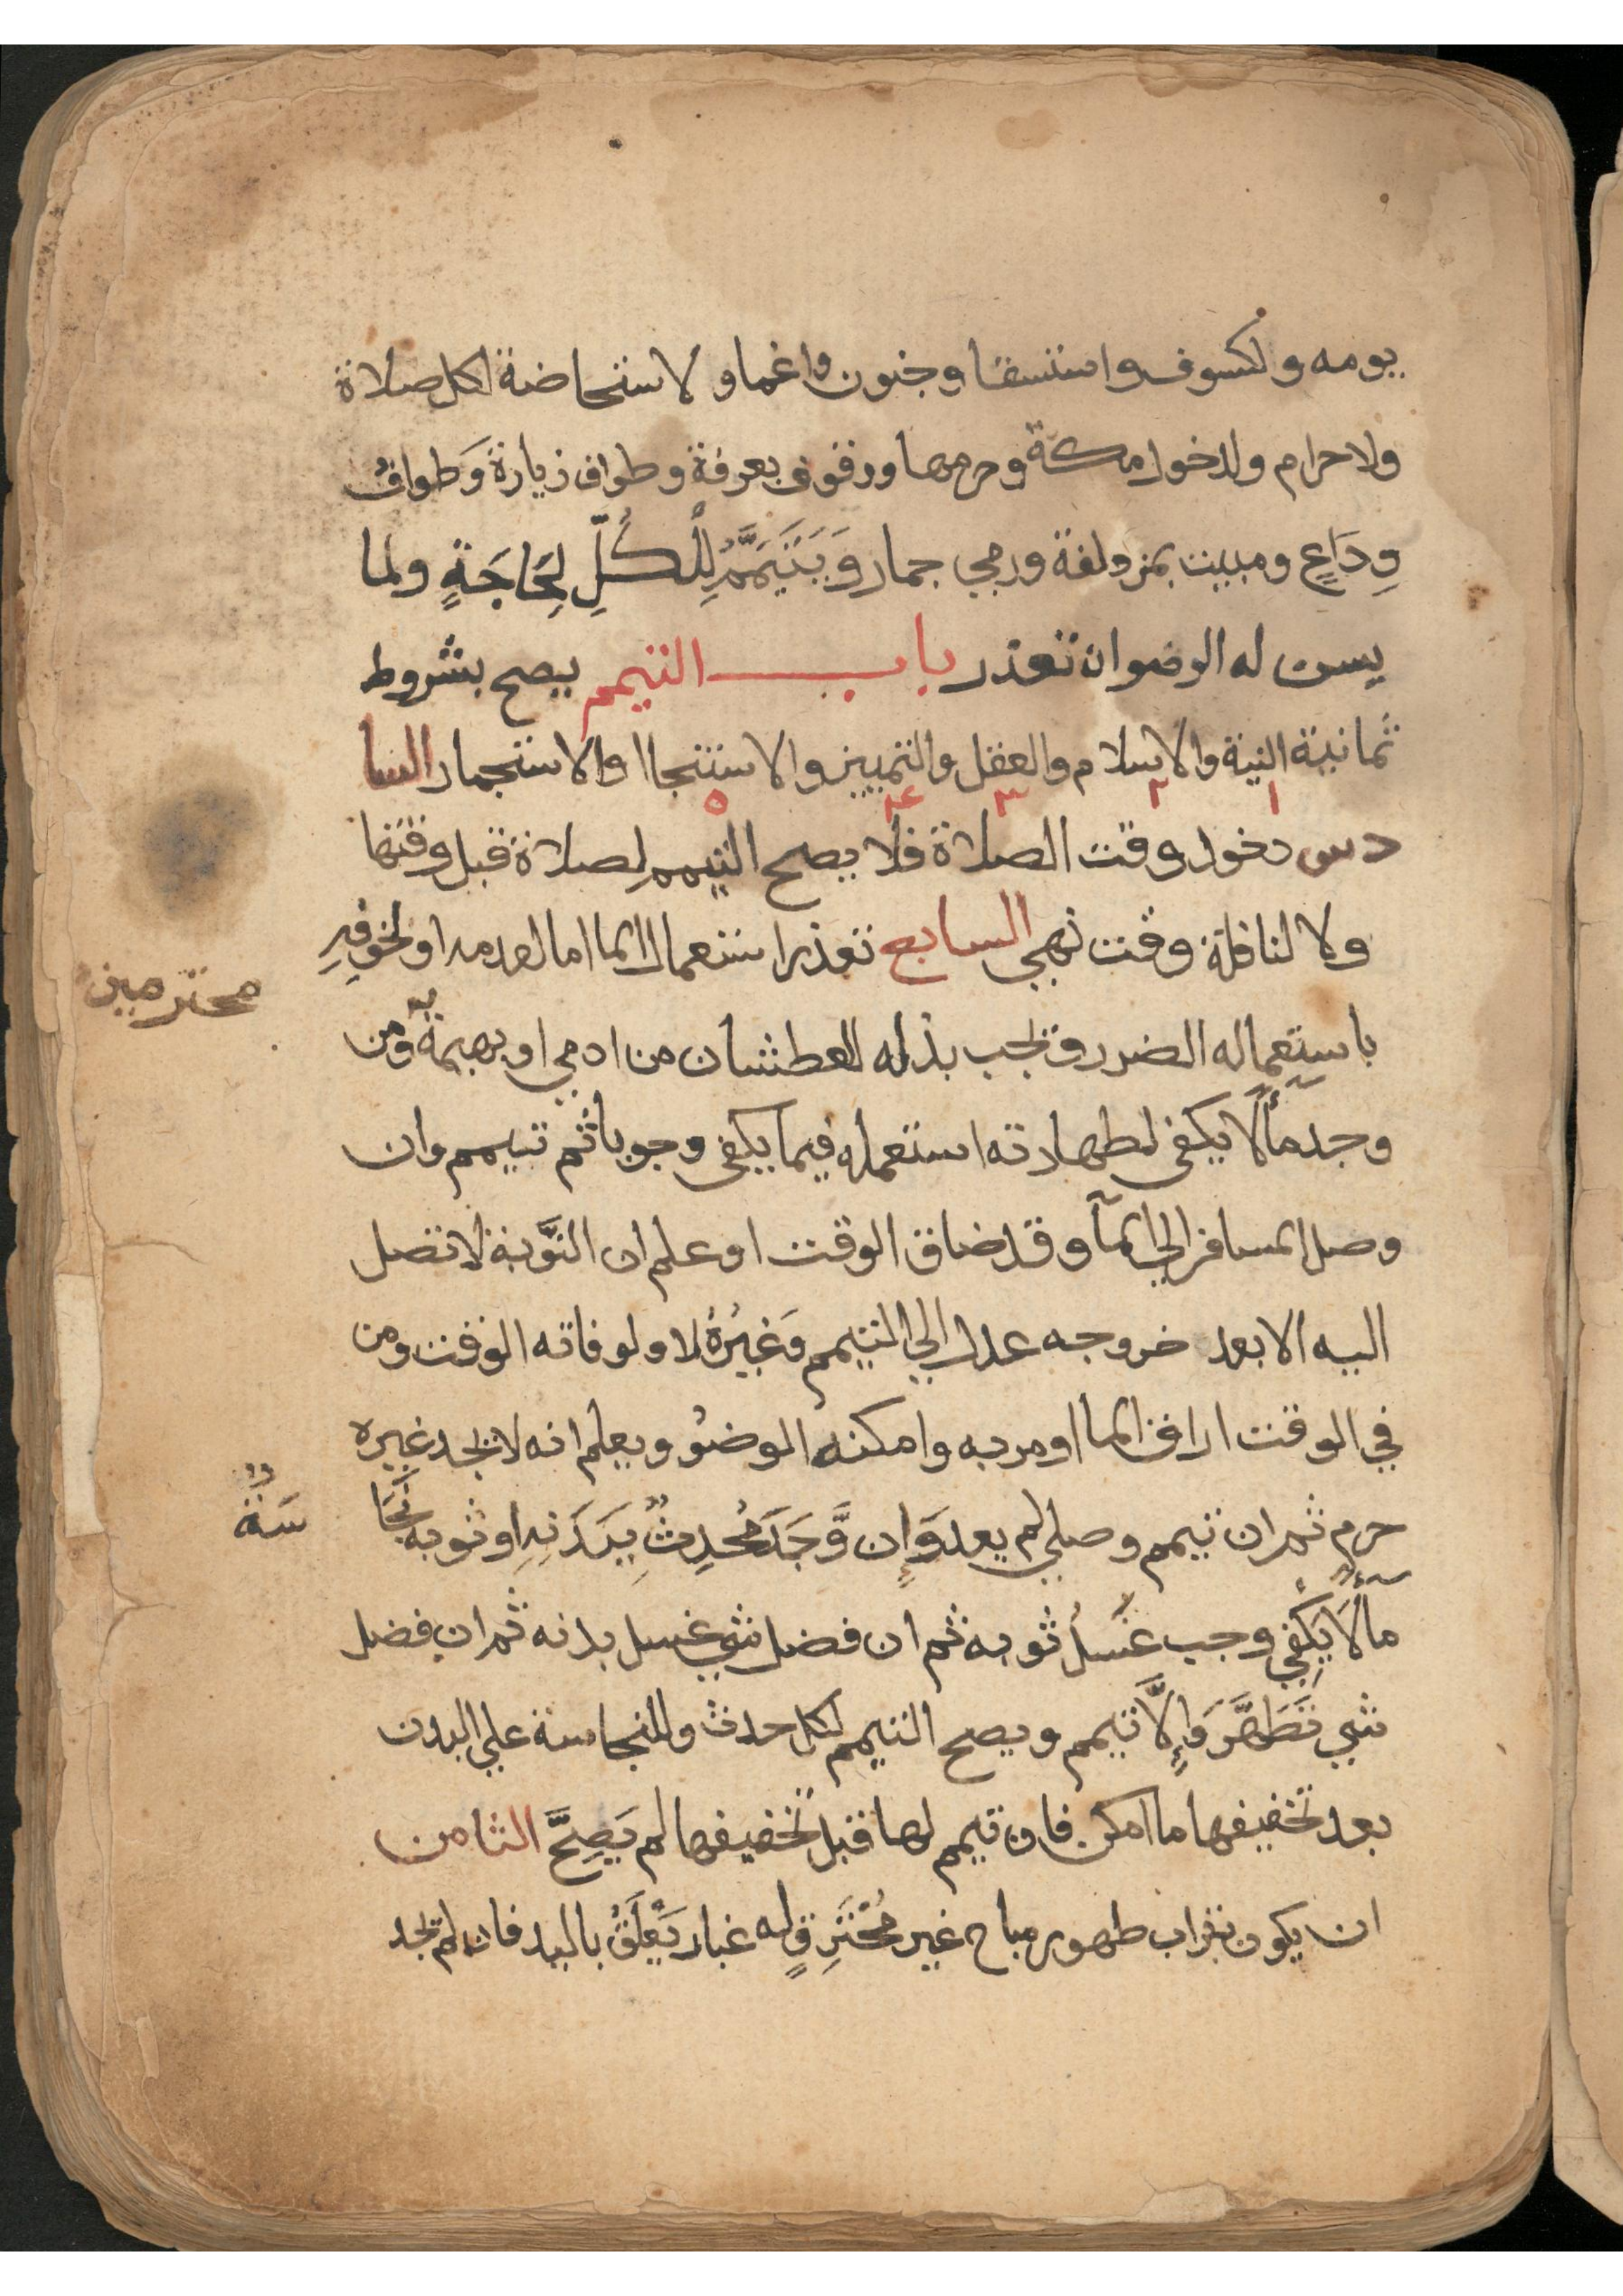 يومه ولكسوف واستسقا وجنون واغما ولاستحاضة لكل صلاة
ولاحرام ولدخول مكة وحرمها ووقوف بعرفة وطواف زيارة وَطوافُ
وِدَاعٍ ومبيت بمزولفة ورمي جمار وَيَتَيَمَّمُ لِلْكُلِّ لِحَاجَةٍ ولما
يسن له الوضوان تعذر باب التيمم يصح بشروط
ثمانية النية والاسلام والعقل والتمييز والاستنجاا والاستجمار السا
١ ٢ ٣ ٤ ٥
دس دخول وقت الصلاة فلا يصح التيمم لصلاة قبل وقتها
ولا لنافلة وقت نهي السابع تعذر استعمال الما اما لعدمه او لخوفِهِ
باستِعماله الضرر وتجب بذله للعطشان من ادمي او بهيمة ومن
محترمين
وجد مآلًا يكفي لطهارته استعمله فيما يكفي وجوباً ثم تيمم وان
وصل المسافر الي المآ وقد ضاق الوقت او علم ان النَّوبة لا تصل
اليه الا بعد خروجه عدل الي التيمم وَغَيْرُهُ لا ولو فاته الوقت ومن
في الوقت اراق الما او مر به وامكنه الوضوُ ويعلم انه لا يجد غيره
حرم ثم ان تيمم وصلي لم يعد وَإن وَّجَدَ مُحْدِثٌ بِبَدَنِهِ او ثوبه نَجَا
سَةٌ
مآلًا يَكْفِي وجب غَسْلُ ثوبه ثم ان فضل شي غسل بدنه ثم ان فضل
شي تَطَهَّرَ وَإِلَّا تيمم ويصح التيمم لكل حدث وللنجاسة علي البدن
بعد تخفيفها ما امكن فان تيمم لها قبل تخفيفها لم يَصِحَّ الثامن
ان يكون بتراب طهور مباح غير مُحْتَرِقٍ له غبار يَعْلَقُ باليد فان لم تجد